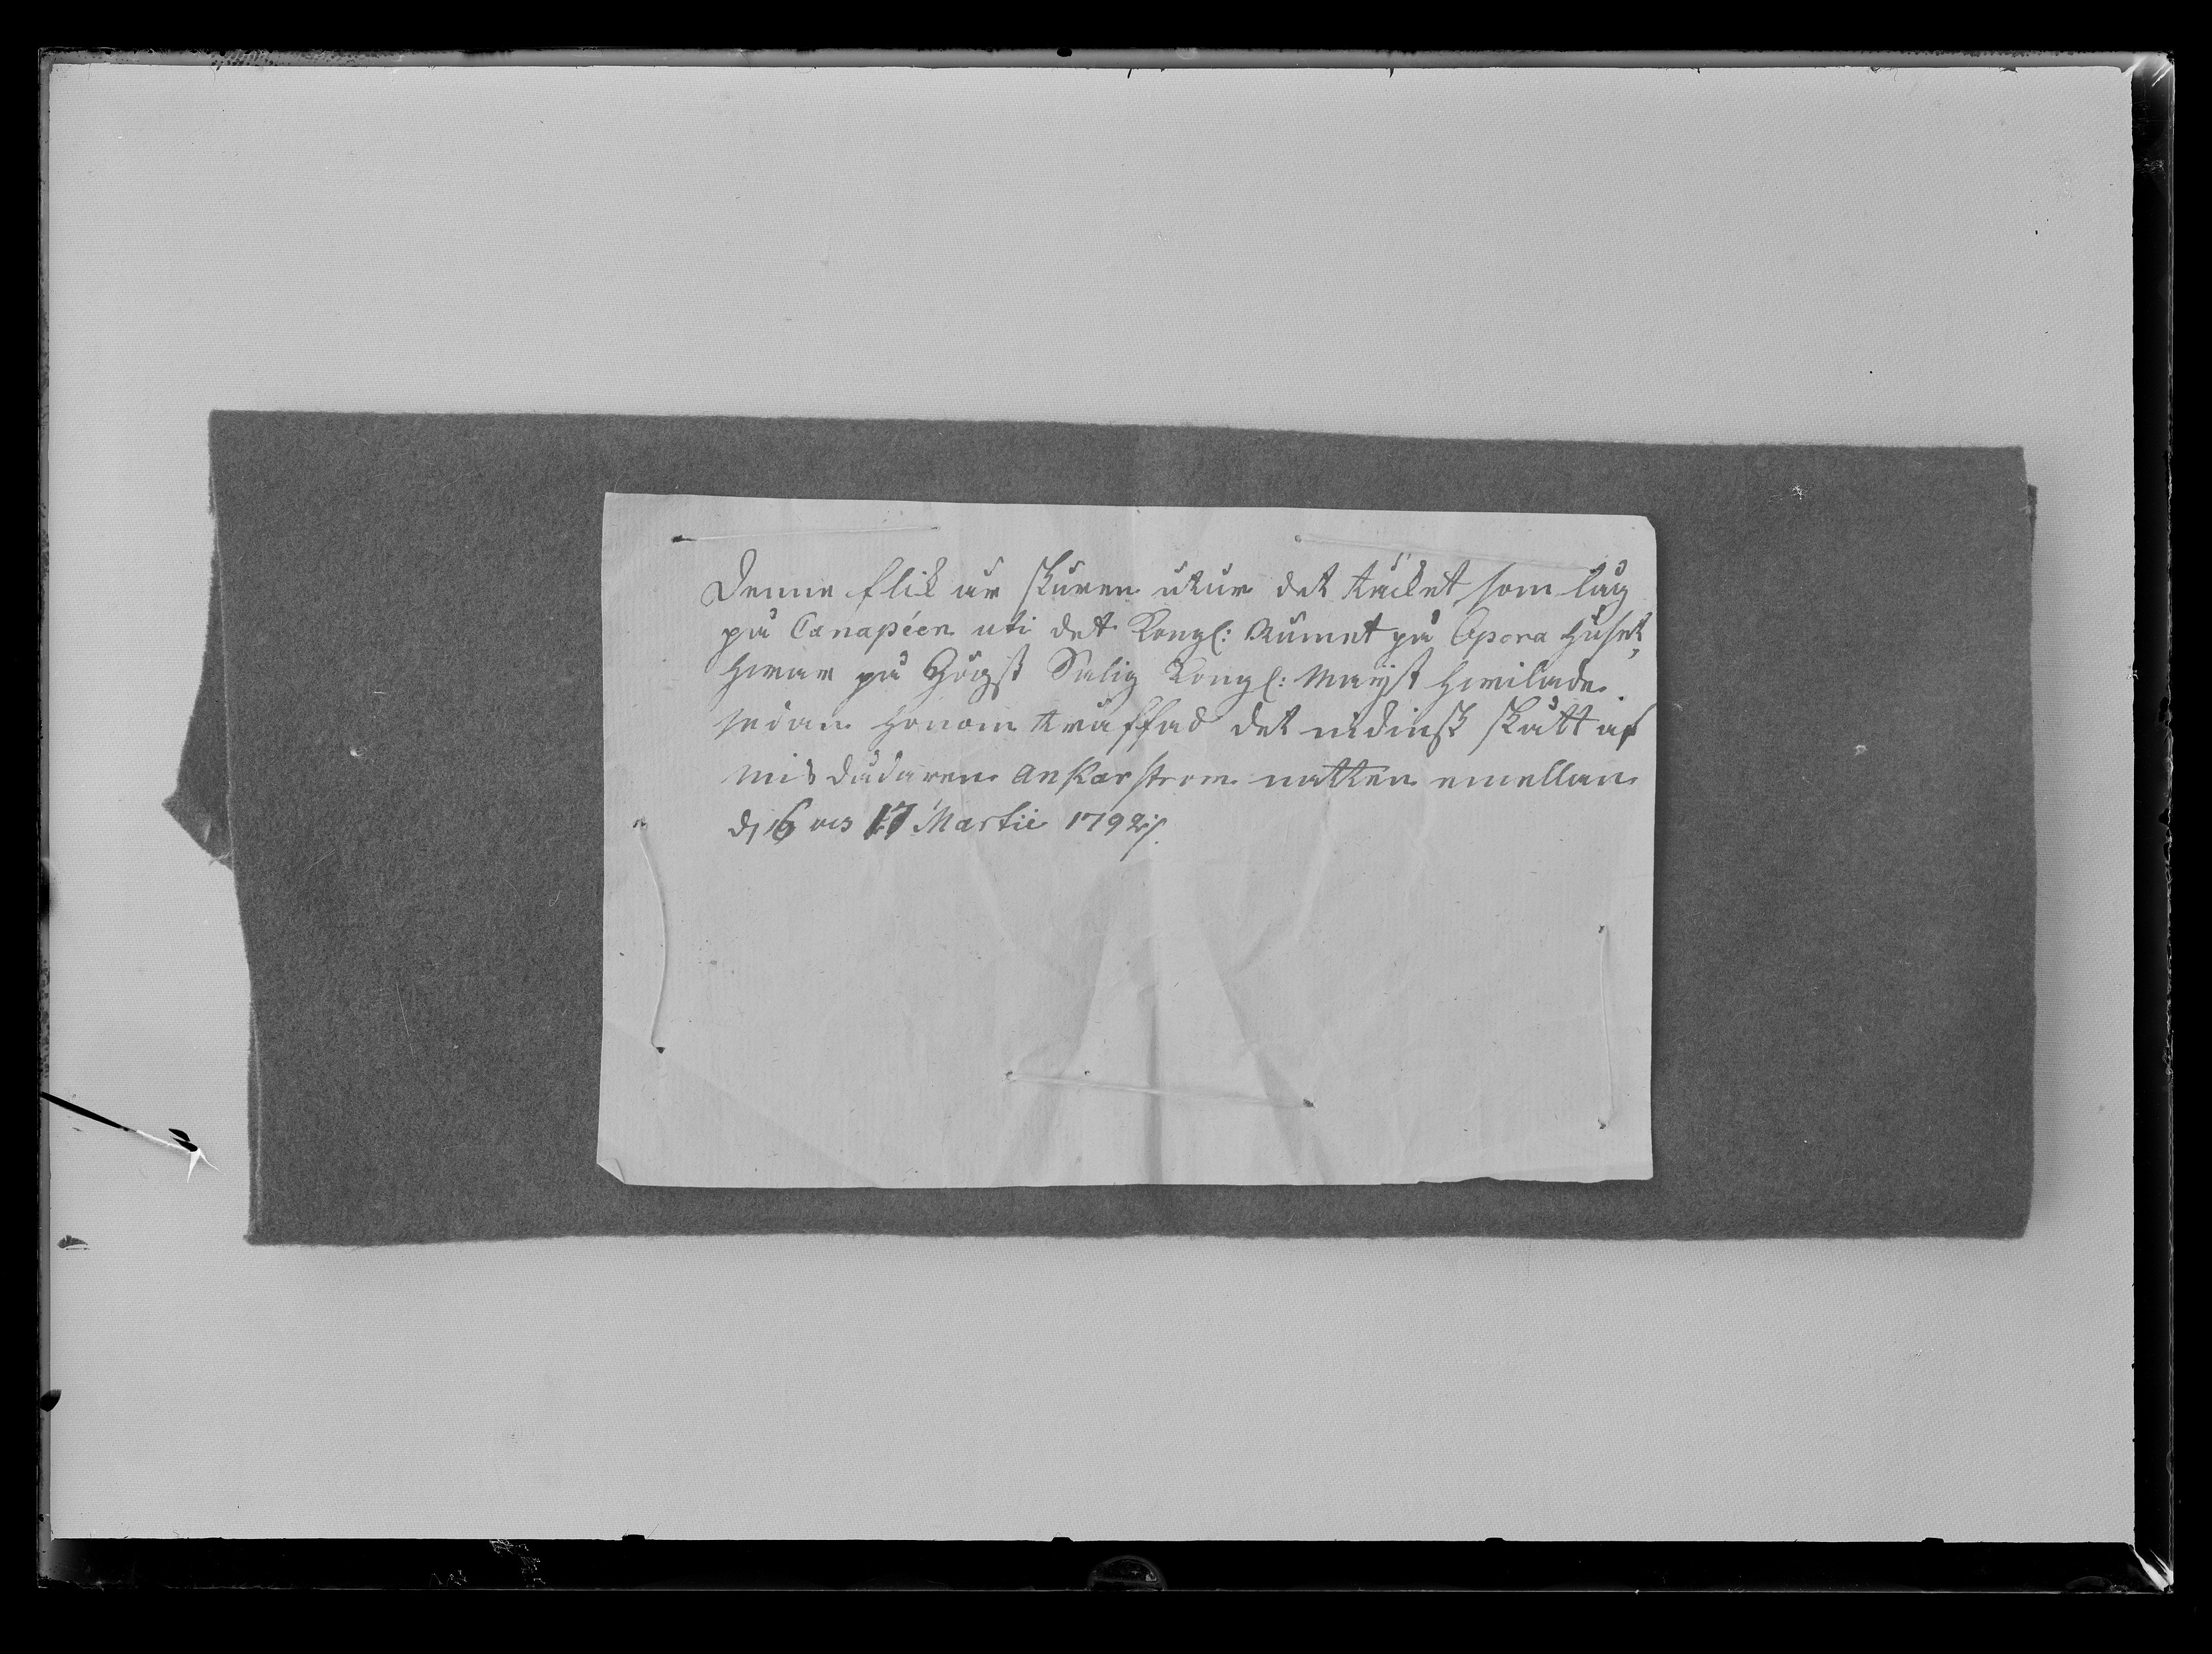 Denne flik är skuren utur det täcket, som låg
på Canapéen uti det Kongl: Rumet på Opera Huset,
hvar på Högst Salig Kongl: Mayst hvilade
sedan honom träffad det nidinsk skått af
misdådaren Ankarstrom natten emellan
d: 16 och 17 Martii 1792